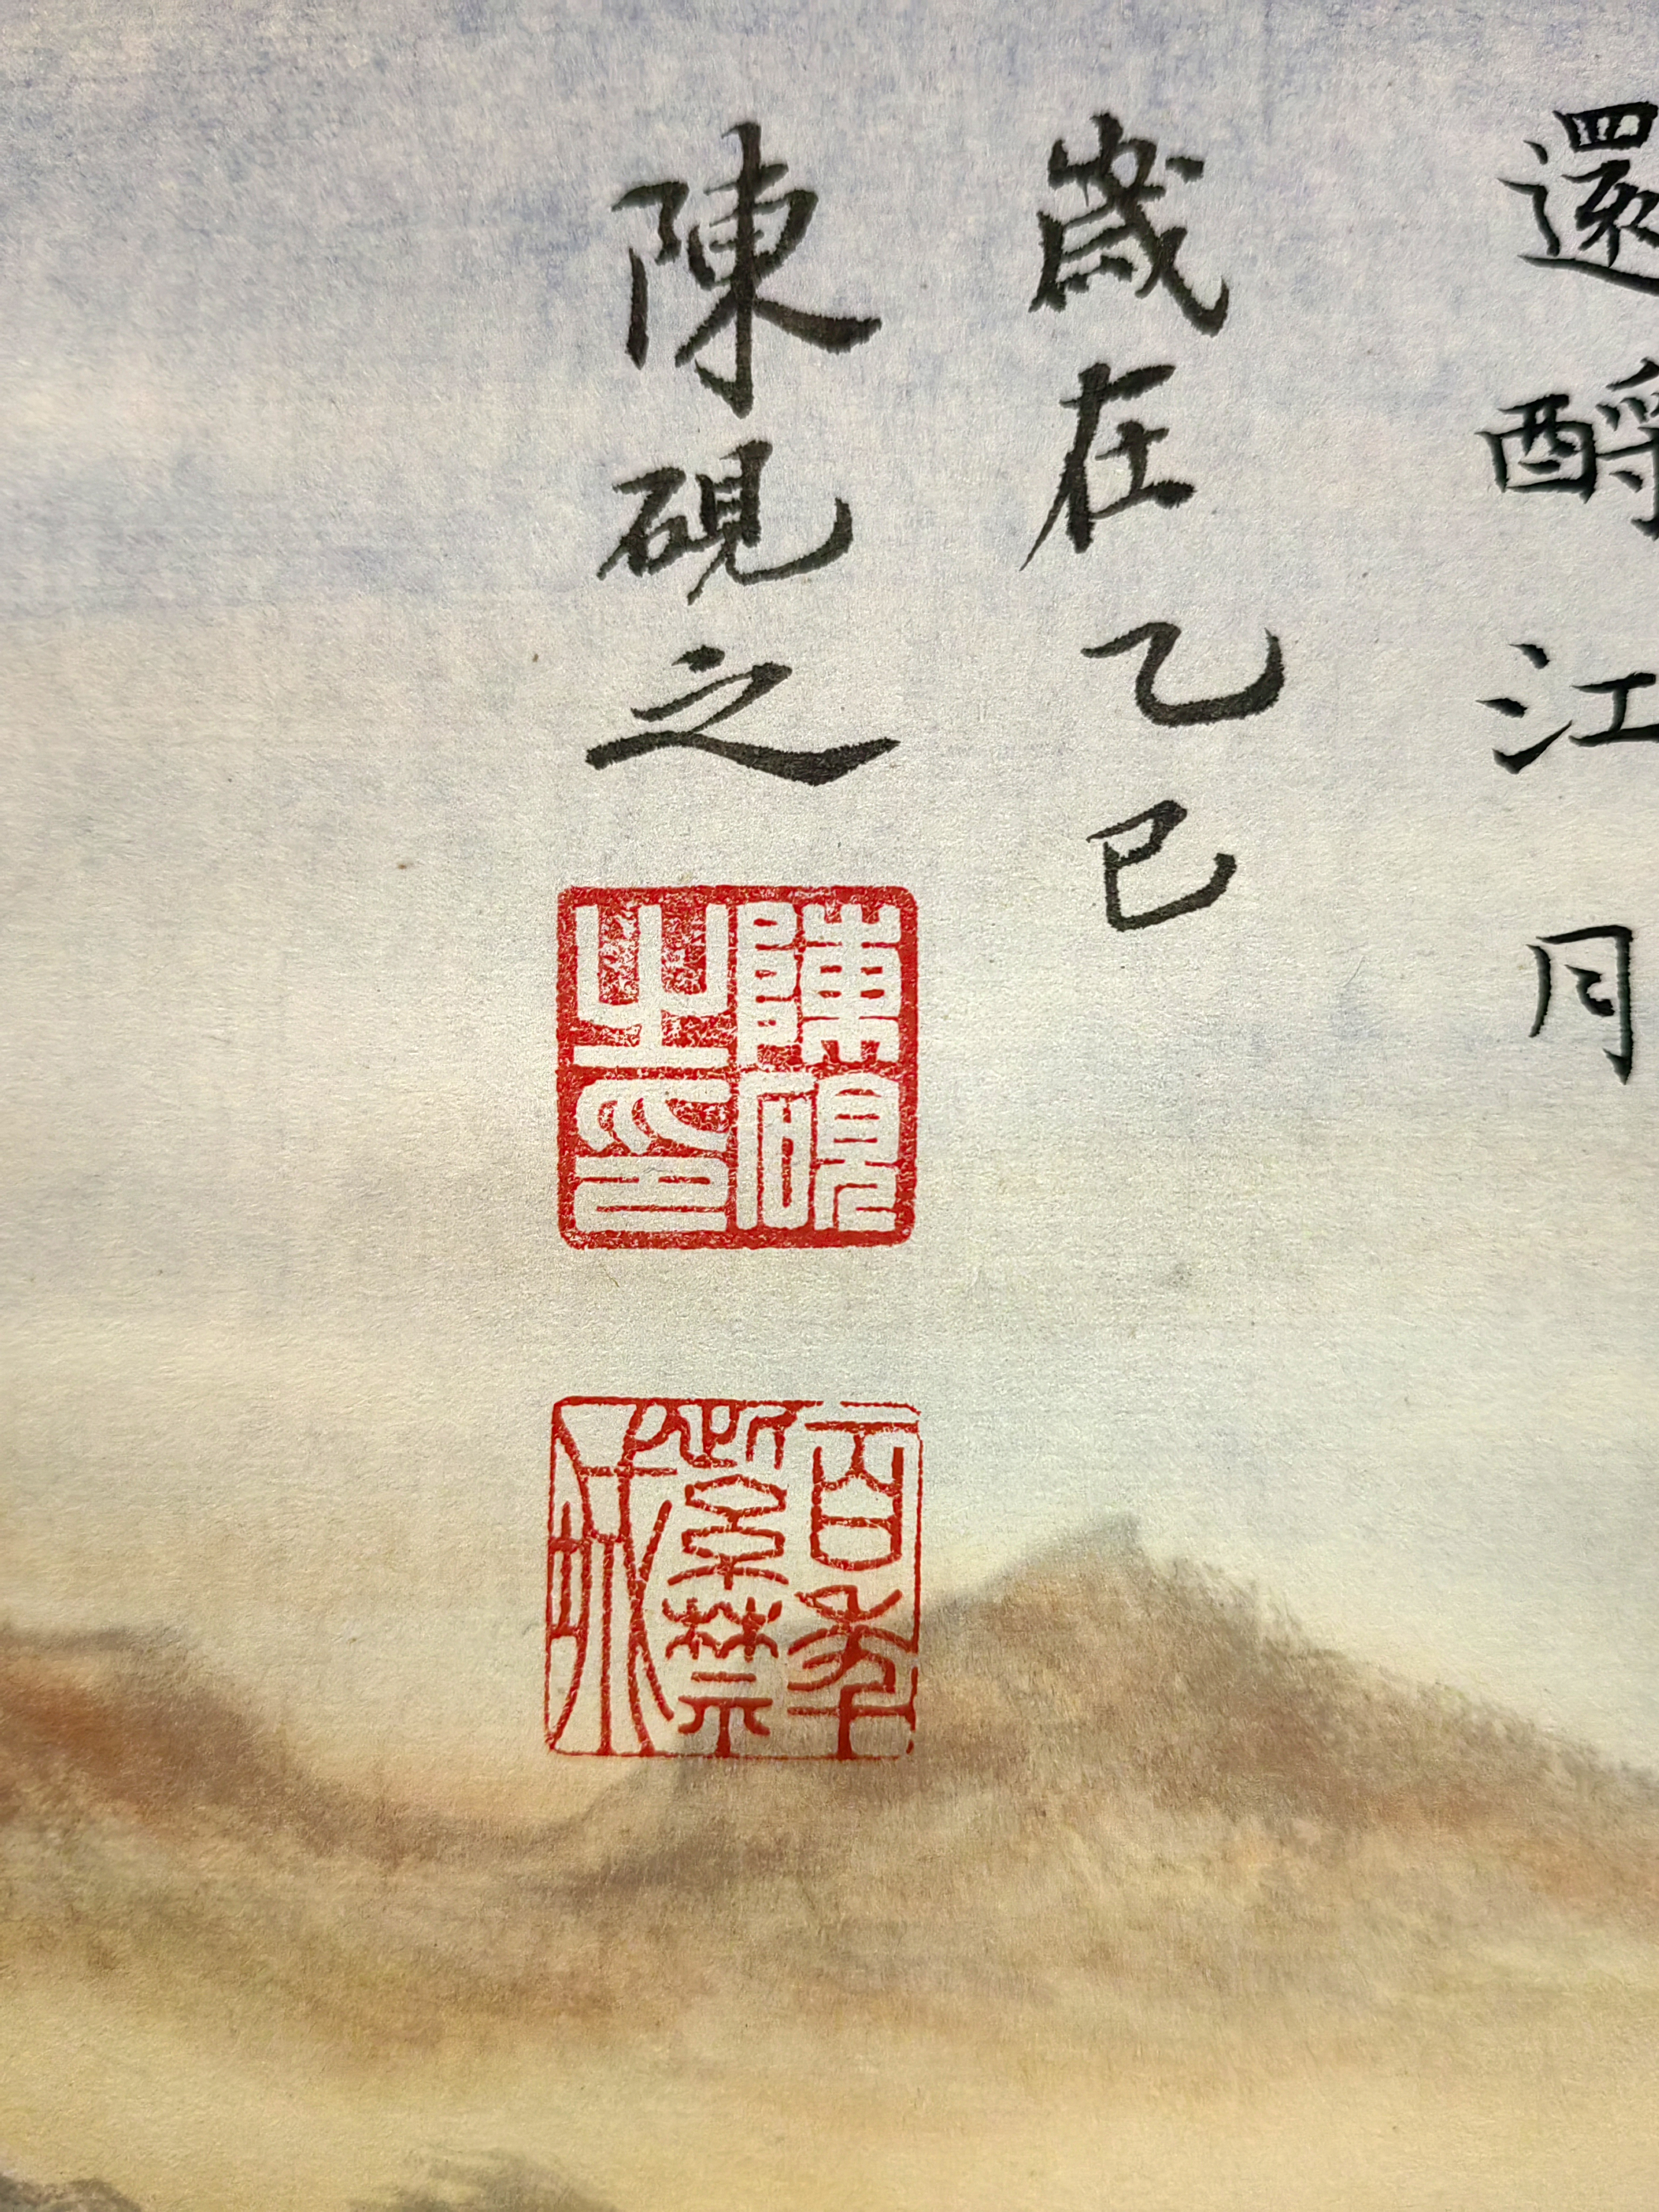 還酹江月
歲在乙巳
陳硯之
陳硯之印
百年